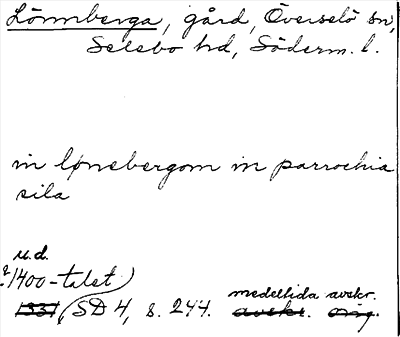 Lönnberga, gård, Överselö sn,
Selebo hd, Söderm. l.
in lønebergom in parrochia
sila
u.d.
1400-talet)
1331 (SD 4, s. 244. medeltida avskr.
avskr. orig.